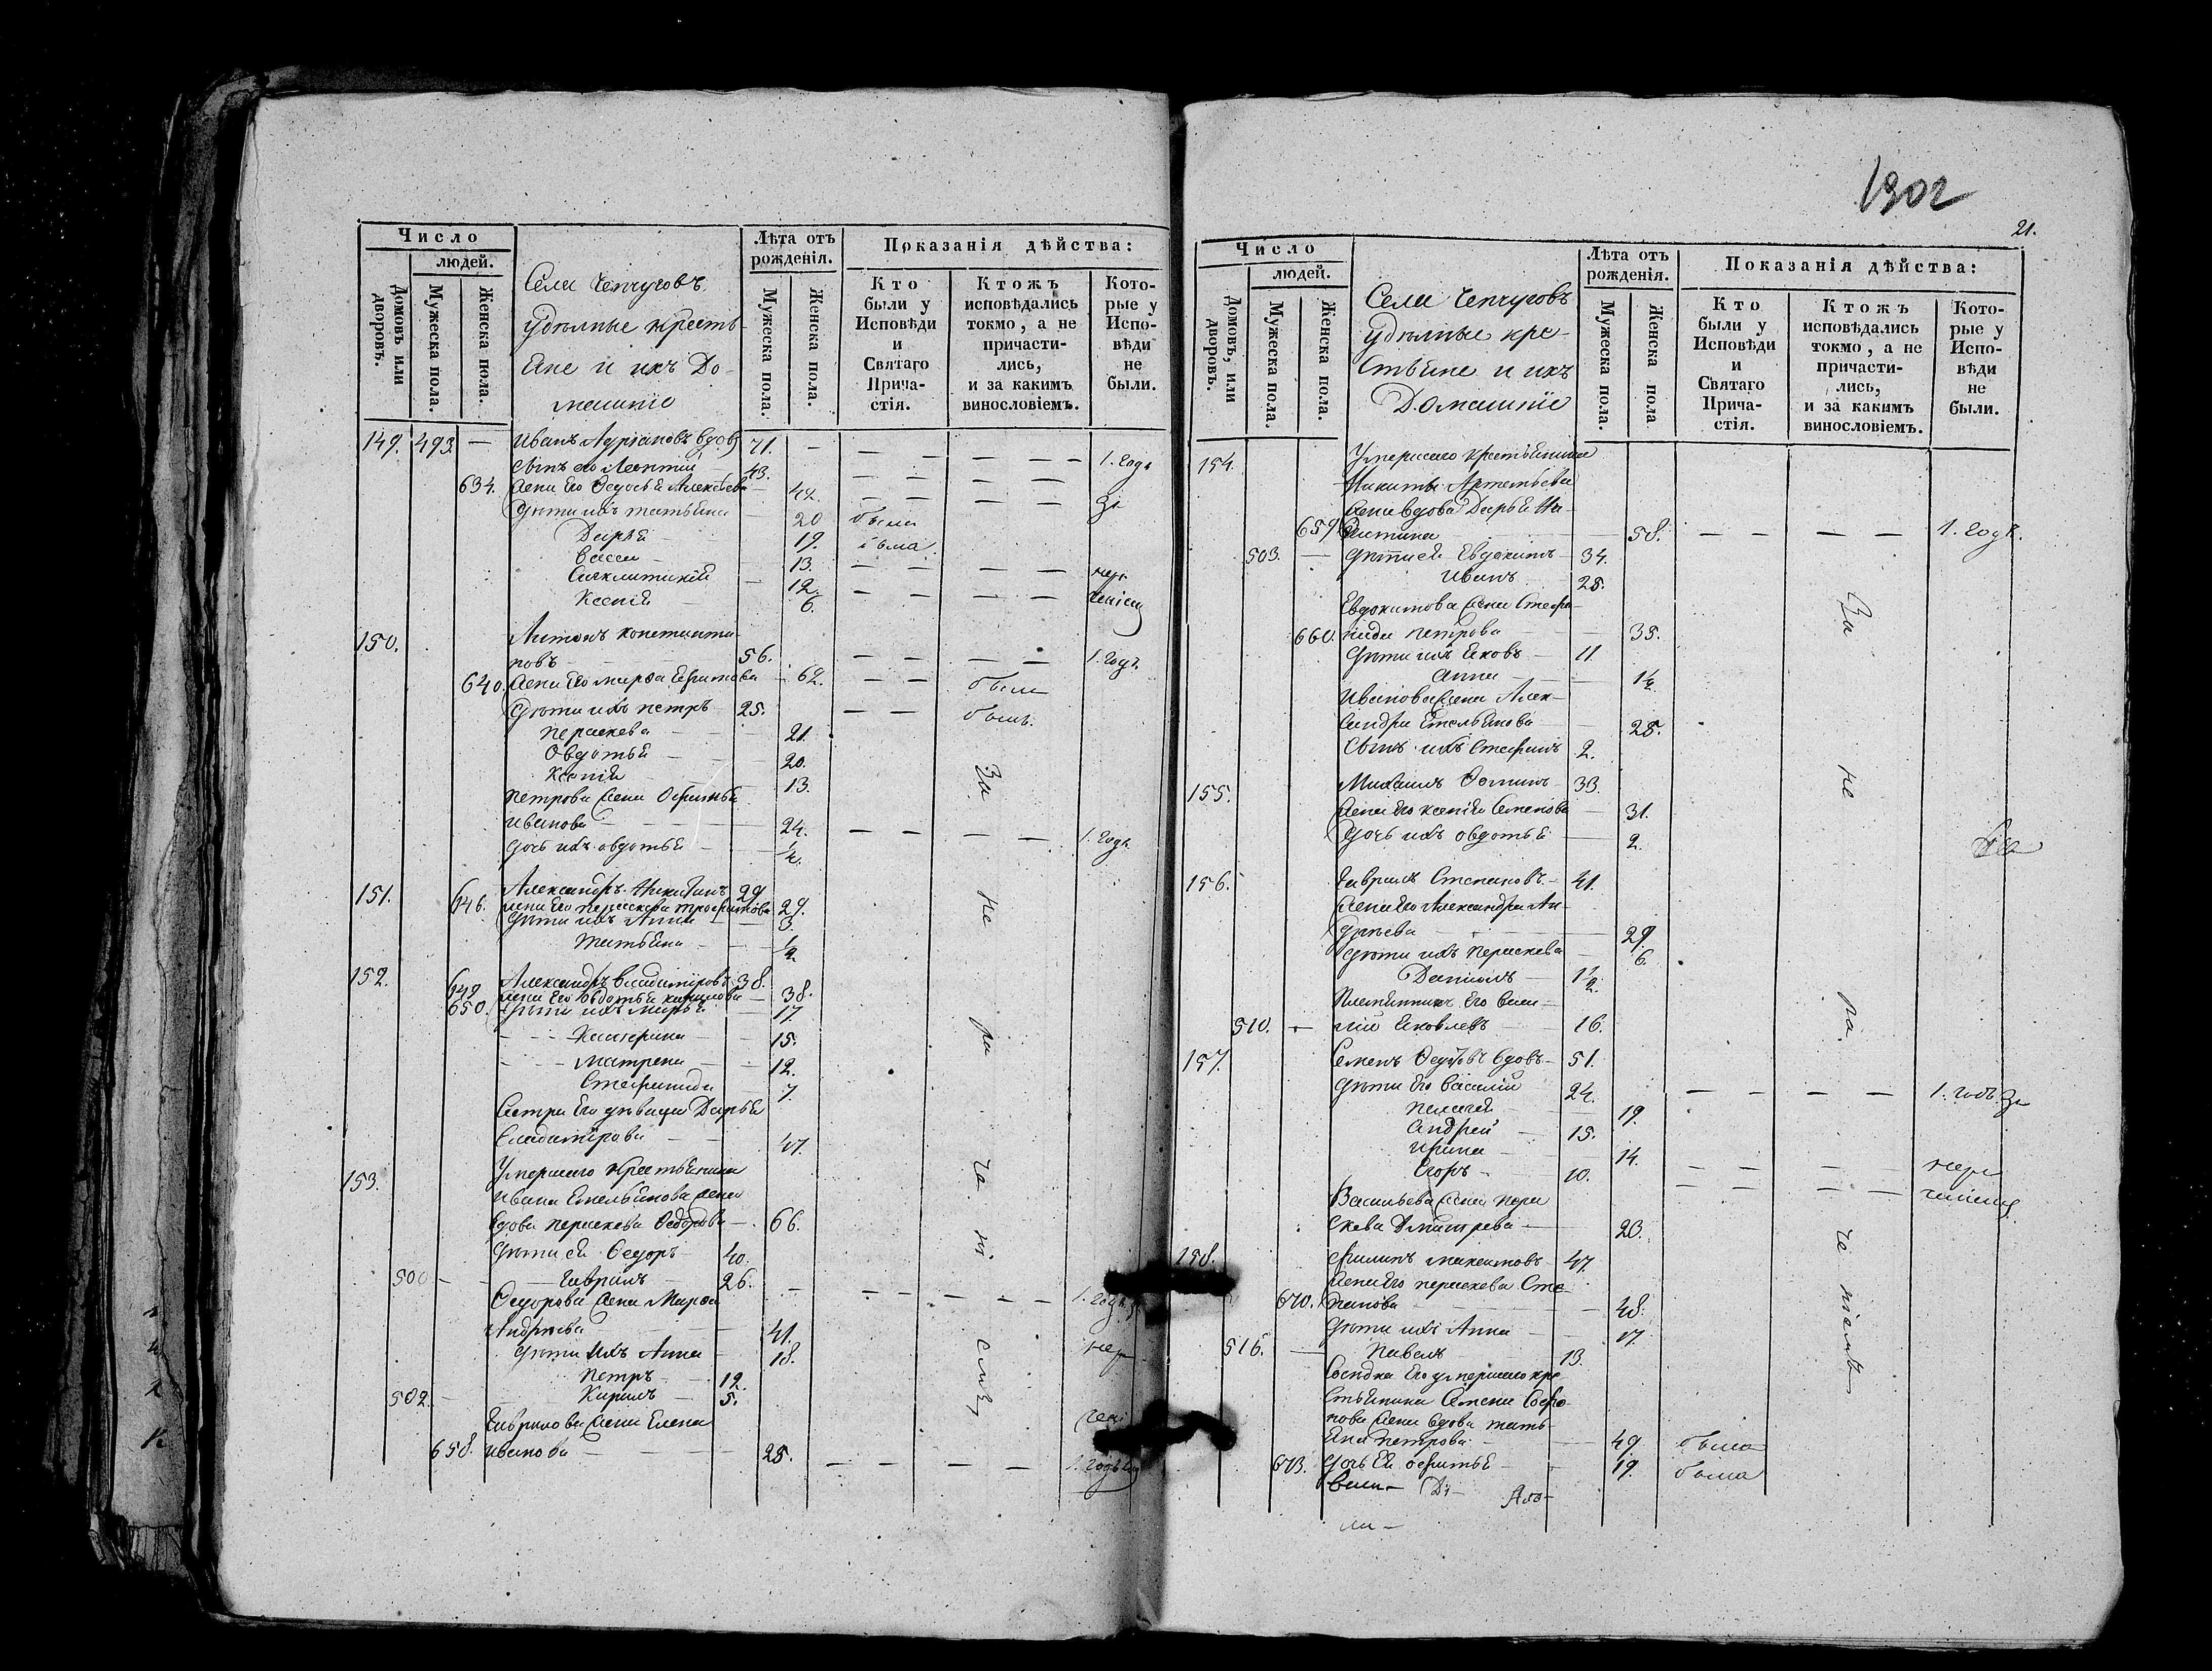 Число
людей.
Домовъ или дворовъ.
Мужеска пола.
Женска пола.
Села Чепчуговъ
Удѣльные кресть-
яне и ихъ до-
машніе
Лѣта отъ рожденія.
Мужеска пола.
Женска пола.
Показанія дѣйства:
Кто были у Исповѣди и Святаго Прича-стія.
Ктожъ исповѣдались токмо, а не причасти-лись, и за какимъ винословіемъ.
Кото-рые у Испо-вѣди не были.
149. 493. — Иванъ Адріановъ вдов 71. — — — — — 1. годъ
Сынъ его Леонтій — 43. — — — —
634. Жена его Ѳедосья Алексѣева — 42. — — — — за
Дѣти ихъ Татьяна — 20 была
Дарья — 19. была
Васса — 13. — — — — нера
Синклитикія — 12.
Ксенія — 6. — — — — дѣнiемъ
150. Антонъ Константи-
новъ — 56. — — — — 1. годъ
640. Жена его Марѳа Ефимова — 62. — — были
Дѣти ихъ Петръ 25. — — былъ
Параскева — 21.
Овдотья — 20.
Ксенія 13.
Петрова жена Офимья
Иванова — 24. — — — — 1. годъ
Дочь ихъ Овдотья — 1/2.
151. Александръ Никитинъ 29
646. жена его Параскева Трофимова 29.
Дѣти ихъ Анна — 3.
Татьяна — 1/2
152. Александръ Владиміровъ 38.
649 жена его Овдотья Кирилова — 38.
650. Дѣти ихъ Марья — 17
Катерина — 15.
Матрена — 12.
Стефанида 7
Сестра его дѣвица Дарья
Владимірова — 47.
153. Умершаго крестьянина
Ивана Емельянова жена
вдова Параскева Ѳедорова — 66.
Дѣти ея Ѳедоръ — 40.
500 — Гаврилъ — 26.
Ѳедорова жена Марѳа — — — — — — 1. годъ
Андреева — 41.
Дѣти ихъ Анна — 18. нер
Петръ — 12.
502. — Кирилъ — 5.
Гаврилова жена Елена
658. Иванова — 25. — — — — 1. годъ
За не ра
1902
21.
Число
людей.
Домовъ, или дворовъ.
Мужеска пола.
Женска пола.
Села Чепчуговъ
Удѣльные кре-
стьяне и ихъ
домашніе
Лѣта отъ рожденія.
Мужеска пола.
Женска пола
Показанія дѣйства:
Кто были у Исповѣди и Святаго Прича-стія.
Ктожъ исповѣдались токмо, а не причасти-лись, и за какимъ винословіемъ.
Кото-рые у Испо-вѣди не были.
154. Умершаго крестьянина
Никиты Артемьева
жена вдова Дарья Ни-
659 — 58. — — — — 1. годъ.
503. — Дѣти ея Евдокимъ — 34.
Иванъ 28.
Евдокимова жена Стефа-
660. нида Петрова — 35.
Дѣти ихъ Яковъ — 11.
Анна — 1/2.
Иванова жена Алек-
сандра Емельянова — 25.
Сынъ ихъ Стефанъ 2.
155. Михаилъ Ѳоминъ 33.
Жена его Ксенія Семенова — 31.
Дочь ихъ Овдотья — 2.
156. Гаврилъ Степановъ — 41.
Жена его Александра Ан-
дреева — 29
Дѣти ихъ Параскева — 6.
Даніилъ — 1/2.
Племянникъ его Васи-
510. — лій Яковлевъ — 16.
157. Семенъ вдовъ — 51.
Дѣти его Василій 24. — — — — 1. годъ за
Пелагея — 19.
Андрей — 15.
Ирина — 14. — — — — нера
Егоръ — 10. — — — —
Васильева жена Пара
скева Дмитрева — 20.
158. Филипъ Максимовъ — 47.
Жена его Параскева Сте-
670. панова — 48.
Дѣти ихъ Анна — 17
516. — Павелъ — 13.
Сосѣдка его умершаго кре
стьянина Семена Софро-
нова жена вдова Тать-
яна Петрова — 49 была
673. Дочь ея Офимья — 19. была
За не ра